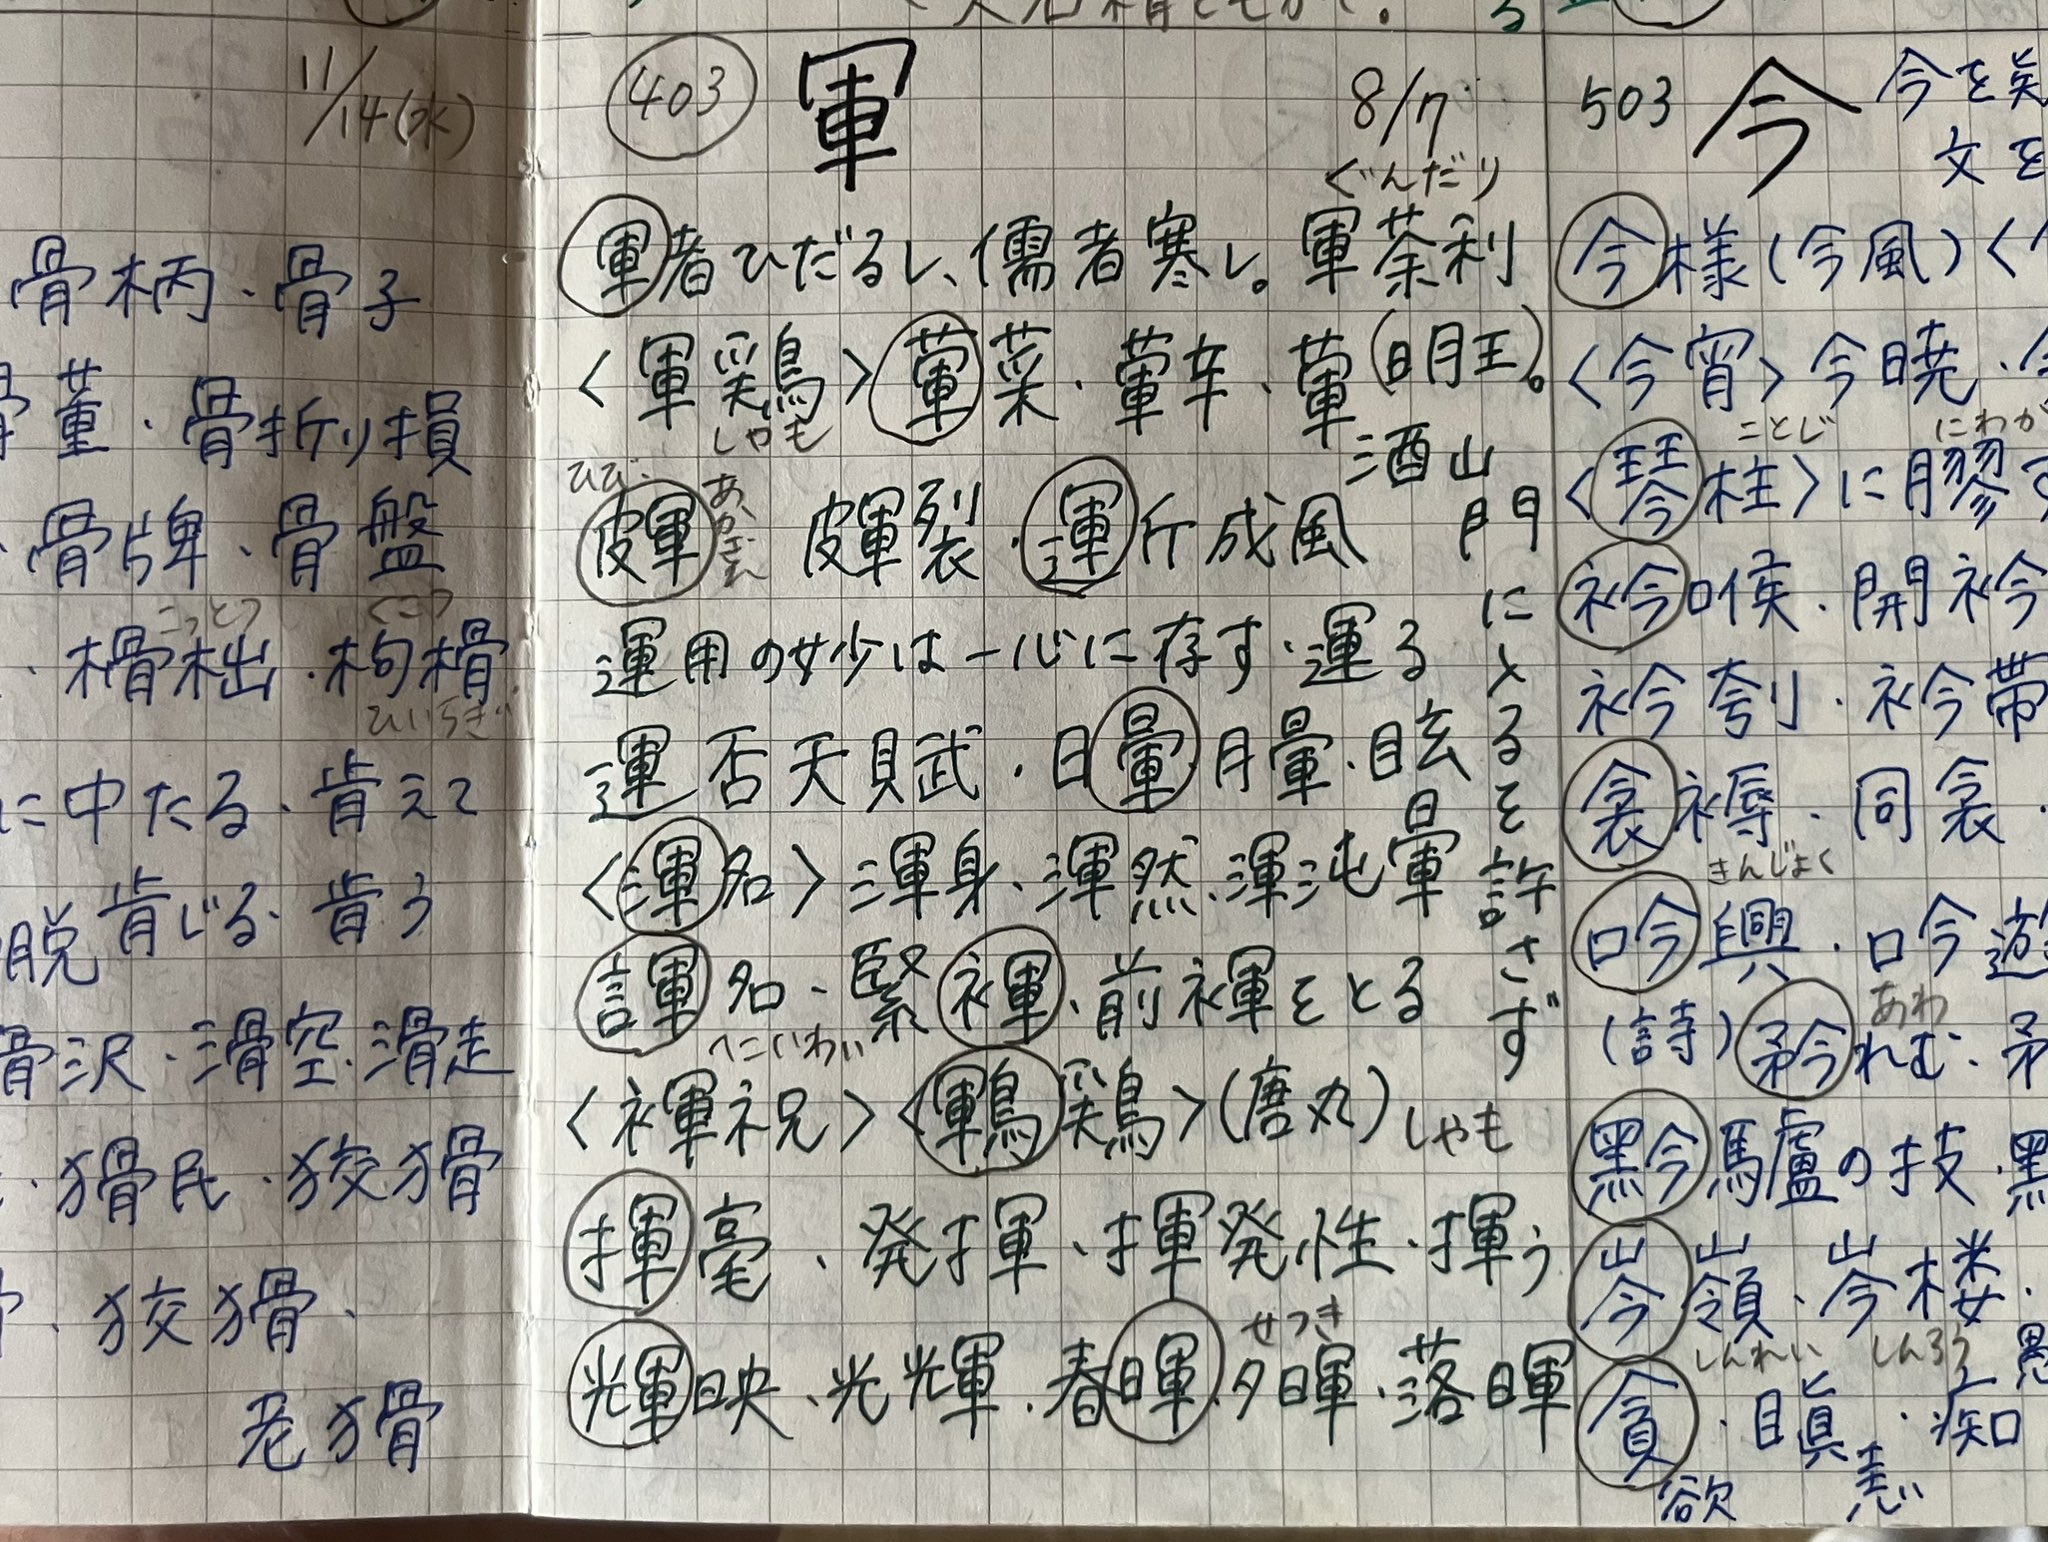 11/14(水)
骨柄・骨子
骨董・骨折り損
・骨牌・骨盤
・榾柮・枸榾
こっとつ くこつ
ひいらぎ
に中たる・肯えて
脱 肯じる・肯う
滑沢・滑空・滑走
・猾民・狡猾
・狡猾・
老猾
403 軍 8/7
ぐんだり
軍者ひだるし、儒者寒し。軍荼利
(明王)。
<軍鶏>葷菜・葷辛・葷
しゃも
酒山門に入るを許さず
ひび あかぎれ
皹 皹裂・運斤成風
運用の妙は一心に存す・運る
運否天賦・日暈・月暈・眩暈
<渾名>渾身・渾然・渾沌
諢名・緊褌・前褌をとる
へこいわい
<褌祝><鶤鶏>(唐丸)しゃも
揮毫・発揮・揮発性・揮う
せっき
輝映・光輝・春暉・夕暉・落暉
503 今 今を
文を
今様(今風)<
<今宵>今暁・
ことじ にわか
<琴柱>に膠す
衿喉・開衿
衿契・衿帯
衾褥・同衾・
きんじょく
吟興・吟遊
(詩)矜れむ・矜
あわ
黔驢の技・黔
岑嶺・岑楼・
しんれい しんろう
貪・瞋・痴
欲 恚 愚